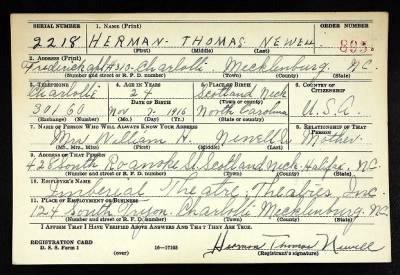 SERIAL NUMBER 1. NAME (Print) ORDER NUMBER
2218 HERMAN THOMAS NEWELL 805
(First) (Middle) (Last)
2. ADDRESS (Print)
Frederick Apt #310 - Charlotte, Mecklenburg, N.C.
(Number and street or R. F. D. number) (Town) (County) (State)
3. TELEPHONE 4. AGE IN YEARS 5. PLACE OF BIRTH 6. COUNTRY OF CITIZENSHIP
Charlotte 24 Scotland Neck
DATE OF BIRTH (Town or county)
Nov 2 1916 North Carolina U.S.A.
(Exchange) (Number) (Mo.) (Day) (Yr.) (State or country)
7. NAME OF PERSON WHO WILL ALWAYS KNOW YOUR ADDRESS 8. RELATIONSHIP OF THAT PERSON
Mrs William H. Newell Sr Mother
(Mr., Mrs., Miss) (First) (Middle) (Last)
9. ADDRESS OF THAT PERSON
428 South Roanoke St Scotland Neck - Halifax - N.C.
(Number and street or R. F. D. number) (Town) (County) (State)
10. EMPLOYER'S NAME
Imperial Theatre Theatres, Inc.
11. PLACE OF EMPLOYMENT OR BUSINESS
124 South Tryon - Charlotte - Mecklenburg - N.C.
(Number and street or R. F. D. number) (Town) (County) (State)
I AFFIRM THAT I HAVE VERIFIED ABOVE ANSWERS AND THAT THEY ARE TRUE.
REGISTRATION CARD
D. S. S. Form 1 (over) 16—17105 Herman Thomas Newell
(Registrant's signature)